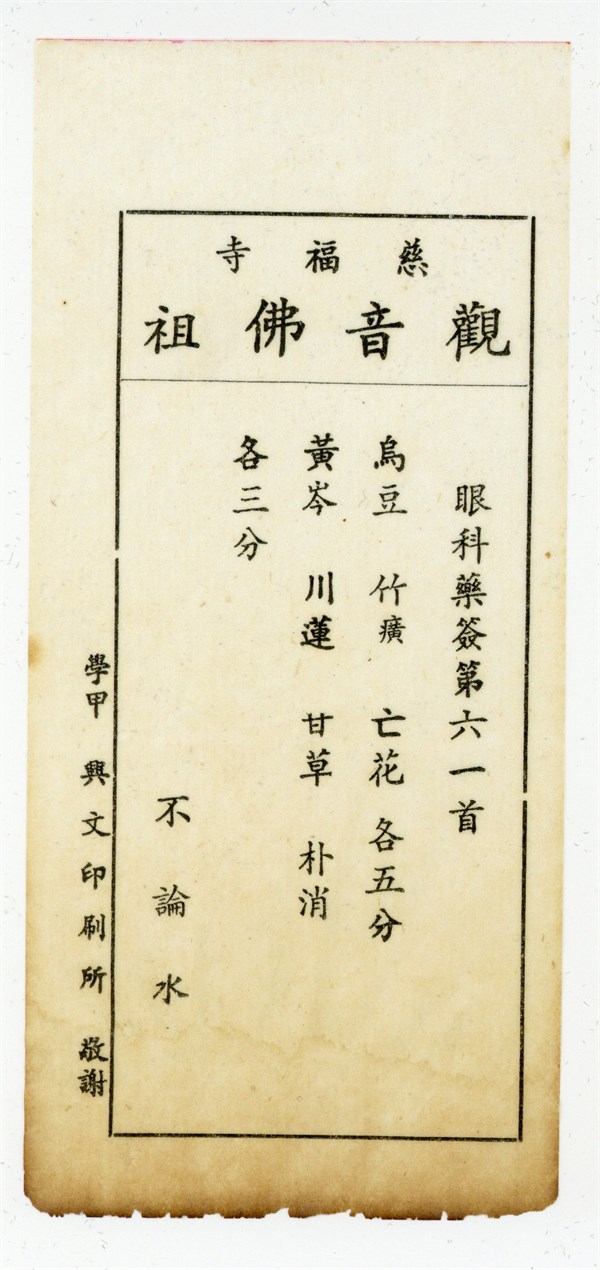 慈福寺
觀音佛祖
眼科藥簽第六一首
烏豆 竹癀 亡花 各五分
黃岑 川蓮 甘草 朴消
各三分
不論水
學甲 興文印刷所 敬謝